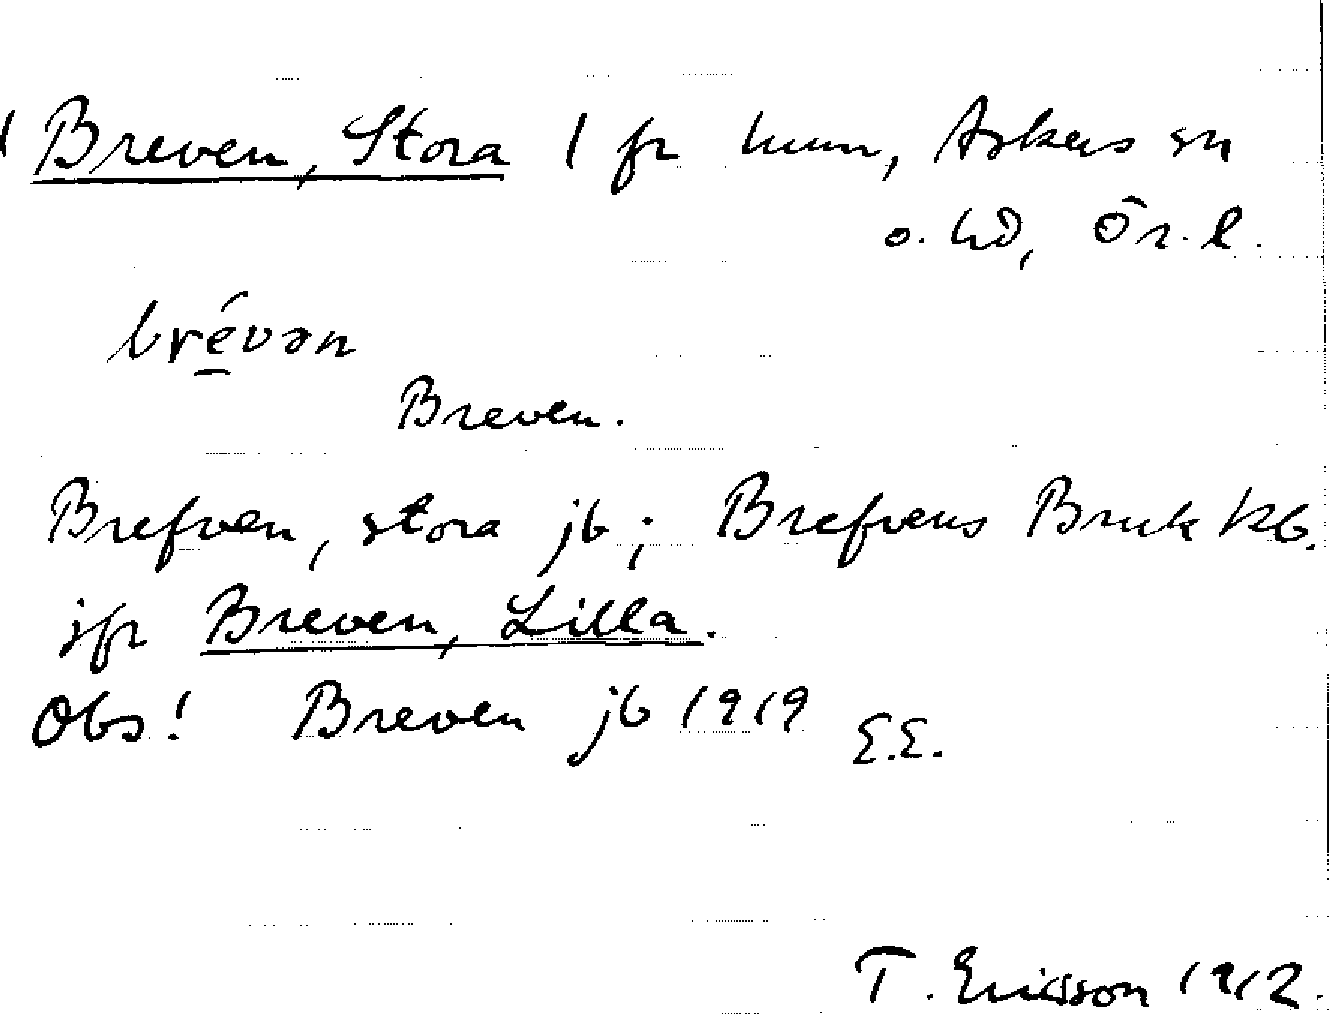 Breven, Stora 1 fr hmn, Askers sn
o. hd, Ör. l.
brévən
Breven.
Brefven, stora jb; Brefvens Bruk kb.
jfr Breven, Lilla.
Obs! Breven jb 1919 E.E.
T. Ericsson 1912.